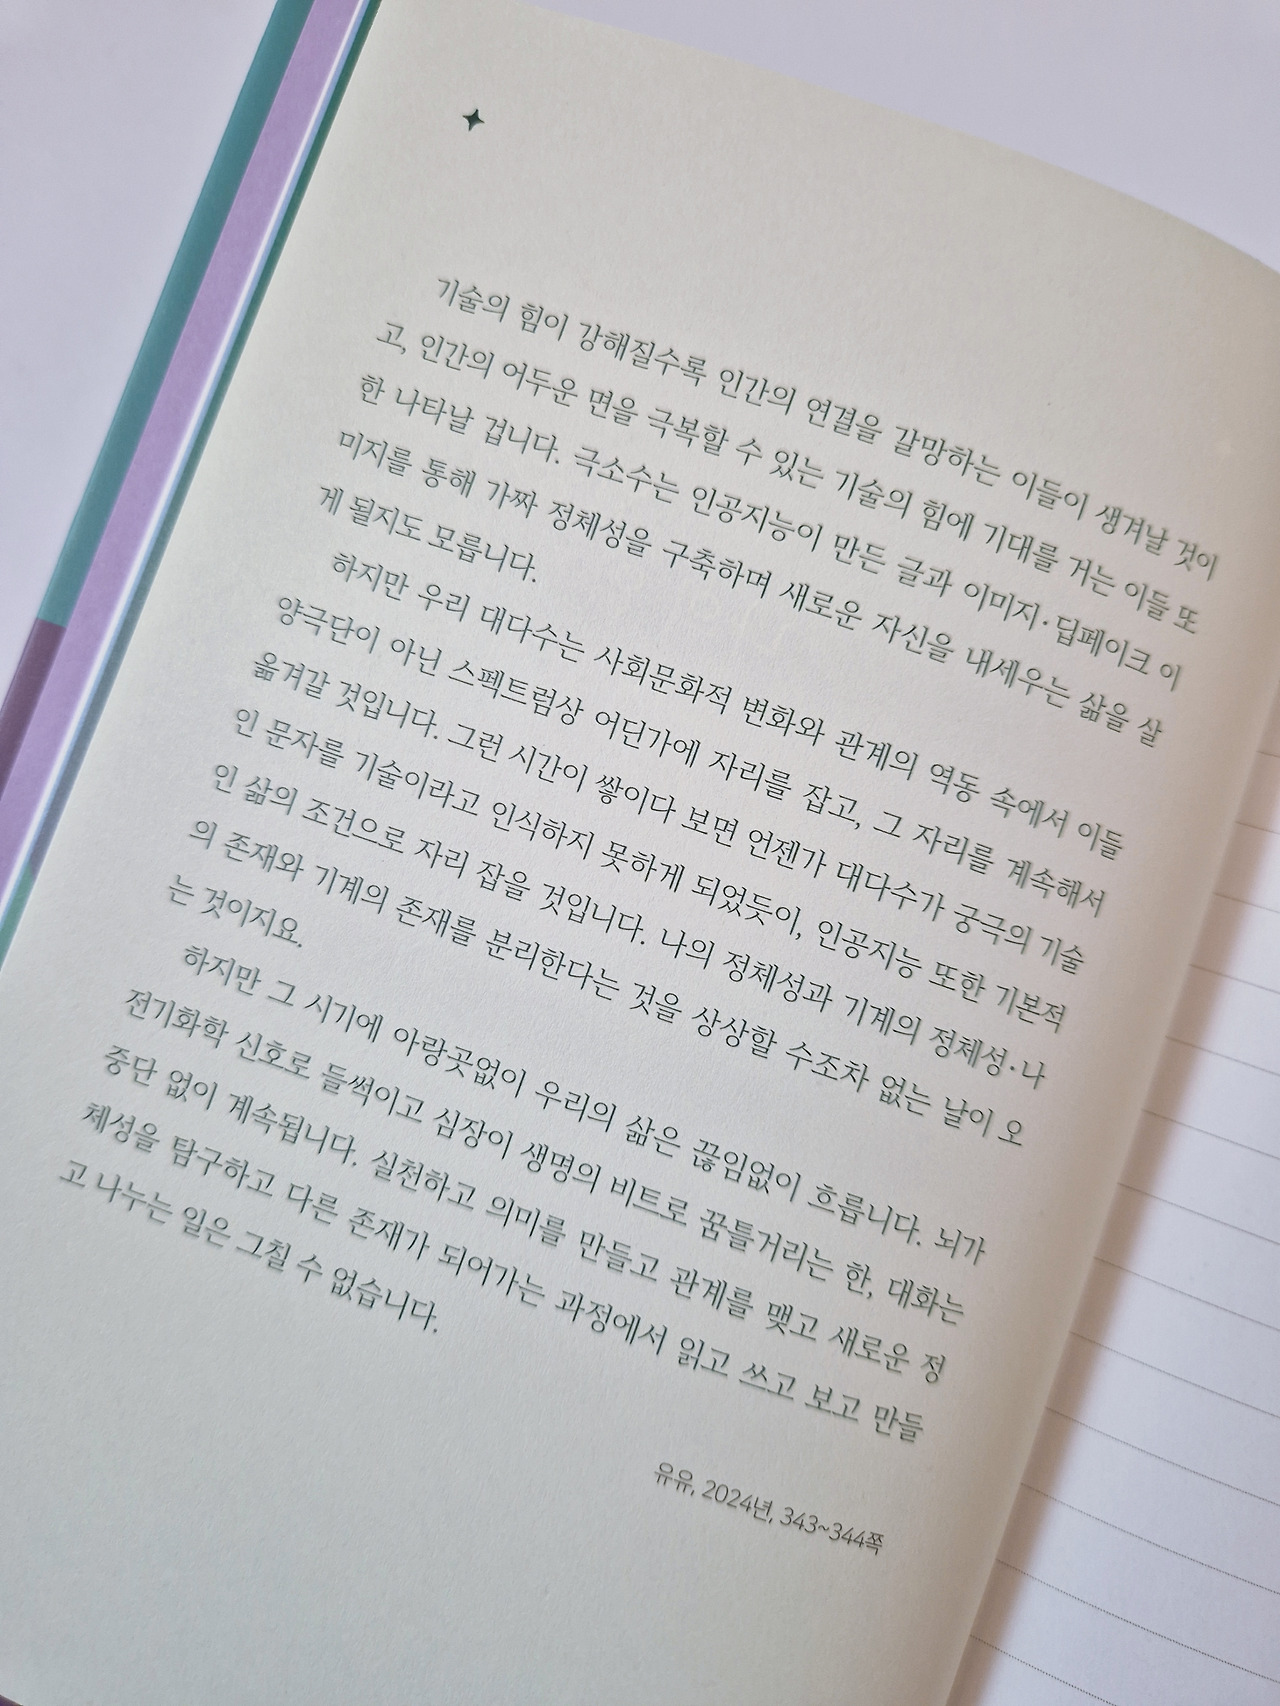 기술의 힘이 강해질수록 인간의 연결을 갈망하는 이들이 생겨날 것이
고, 인간의 어두운 면을 극복할 수 있는 기술의 힘에 기대를 거는 이들 또
한 나타날 겁니다. 극소수는 인공지능이 만든 글과 이미지·딥페이크 이
미지를 통해 가짜 정체성을 구축하며 새로운 자신을 내세우는 삶을 살
게 될지도 모릅니다.
하지만 우리 대다수는 사회문화적 변화와 관계의 역동 속에서 이들
양극단이 아닌 스펙트럼상 어딘가에 자리를 잡고, 그 자리를 계속해서
옮겨갈 것입니다. 그런 시간이 쌓이다 보면 언젠가 대다수가 궁극의 기술
인 문자를 기술이라고 인식하지 못하게 되었듯이, 인공지능 또한 기본적
인 삶의 조건으로 자리 잡을 것입니다. 나의 정체성과 기계의 정체성·나
의 존재와 기계의 존재를 분리한다는 것을 상상할 수조차 없는 날이 오
는 것이지요.
하지만 그 시기에 아랑곳없이 우리의 삶은 끊임없이 흐릅니다. 뇌가
전기화학 신호로 들썩이고 심장이 생명의 비트로 꿈틀거리는 한, 대화는
중단 없이 계속됩니다. 실천하고 의미를 만들고 관계를 맺고 새로운 정
체성을 탐구하고 다른 존재가 되어가는 과정에서 읽고 쓰고 보고 만들
고 나누는 일은 그칠 수 없습니다.
유유, 2024년, 343~344쪽